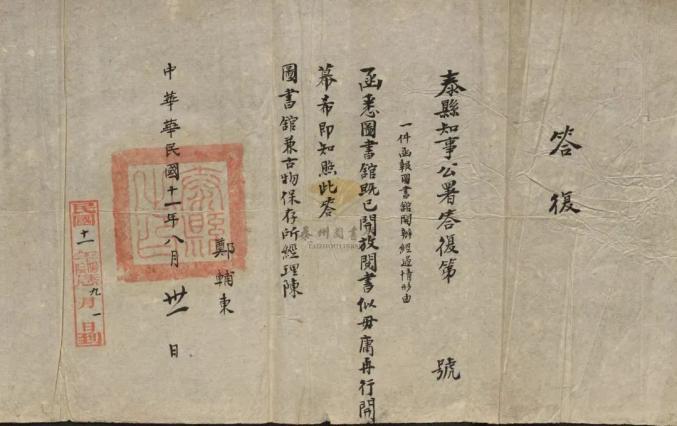 答復
泰縣知事公署答復第 號
一件函報圖書館開辦經過情形由
函悉圖書館既已開放閱書似毋庸再行開
幕希即知照此答
圖書館兼古物保存所經理陳
鄭輔東
中華民國十一年八月卅一日
泰縣
之印
民國十一年
九月一日到
泰州图书
TAIZHOULIBR